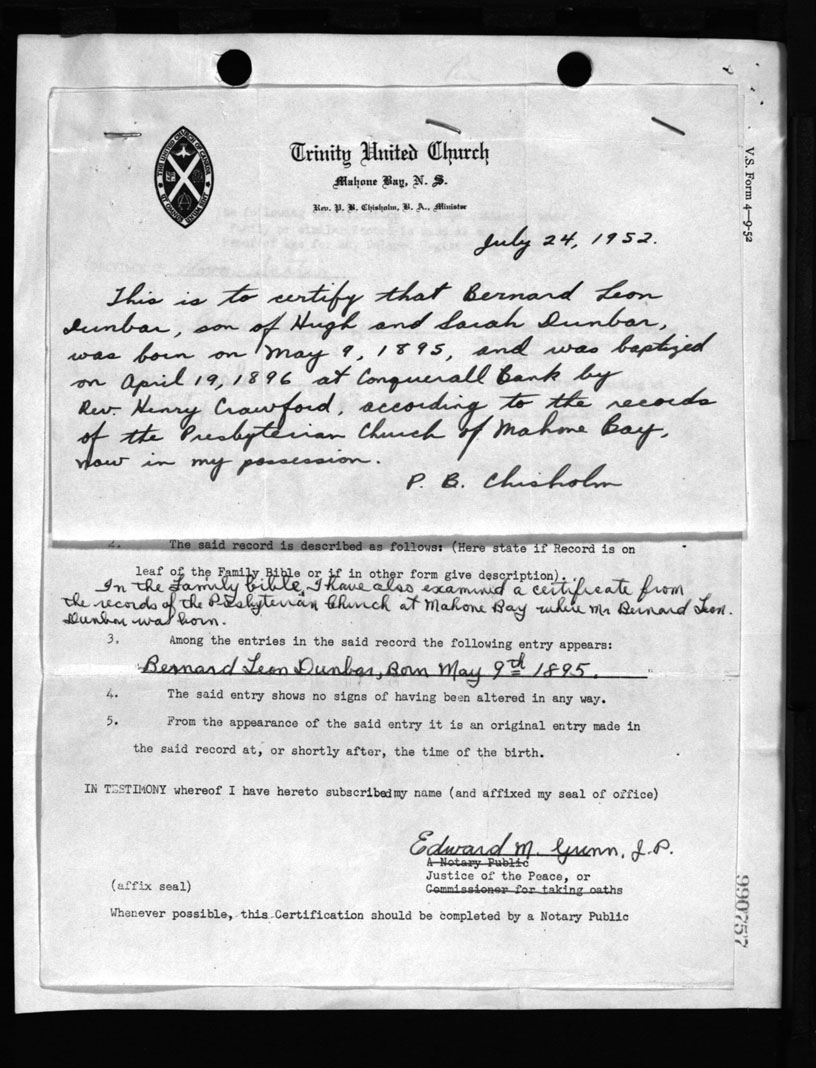 Trinity United Church
Mahone Bay, N. S.
Rev. P. B. Chisholm, B. A., Minister
V.S. Form 4-9-52
July 24, 1952.
This is to certify that Bernard Leon
Dunbar, son of Hugh and Sarah Dunbar,
was born on May 9, 1895, and was baptized
on April 19, 1896 at Conquerall Bank by
Rev. Henry Crawford, according to the records
of the Presbyterian Church of Mahone Bay,
now in my possession.
P. B. Chisholm
2. The said record is described as follows: (Here state if Record is on
leaf of the Family Bible or if in other form give description).
In the family bible, I have also examined a certificate from
the records of the Presbyterian Church at Mahone Bay where Mr Bernard Leon
Dunbar was born.
3. Among the entries in the said record the following entry appears:
"Bernard Leon Dunbar, Born May 9th 1895."
4. The said entry shows no signs of having been altered in any way.
5. From the appearance of the said entry it is an original entry made in
the said record at, or shortly after, the time of the birth.
IN TESTIMONY whereof I have hereto subscribed my name (and affixed my seal of office)
Edward M. Gunn, J.P.
A Notary Public
Justice of the Peace, or
(affix seal) Commissioner for taking oaths
Whenever possible, this Certification should be completed by a Notary Public
990757